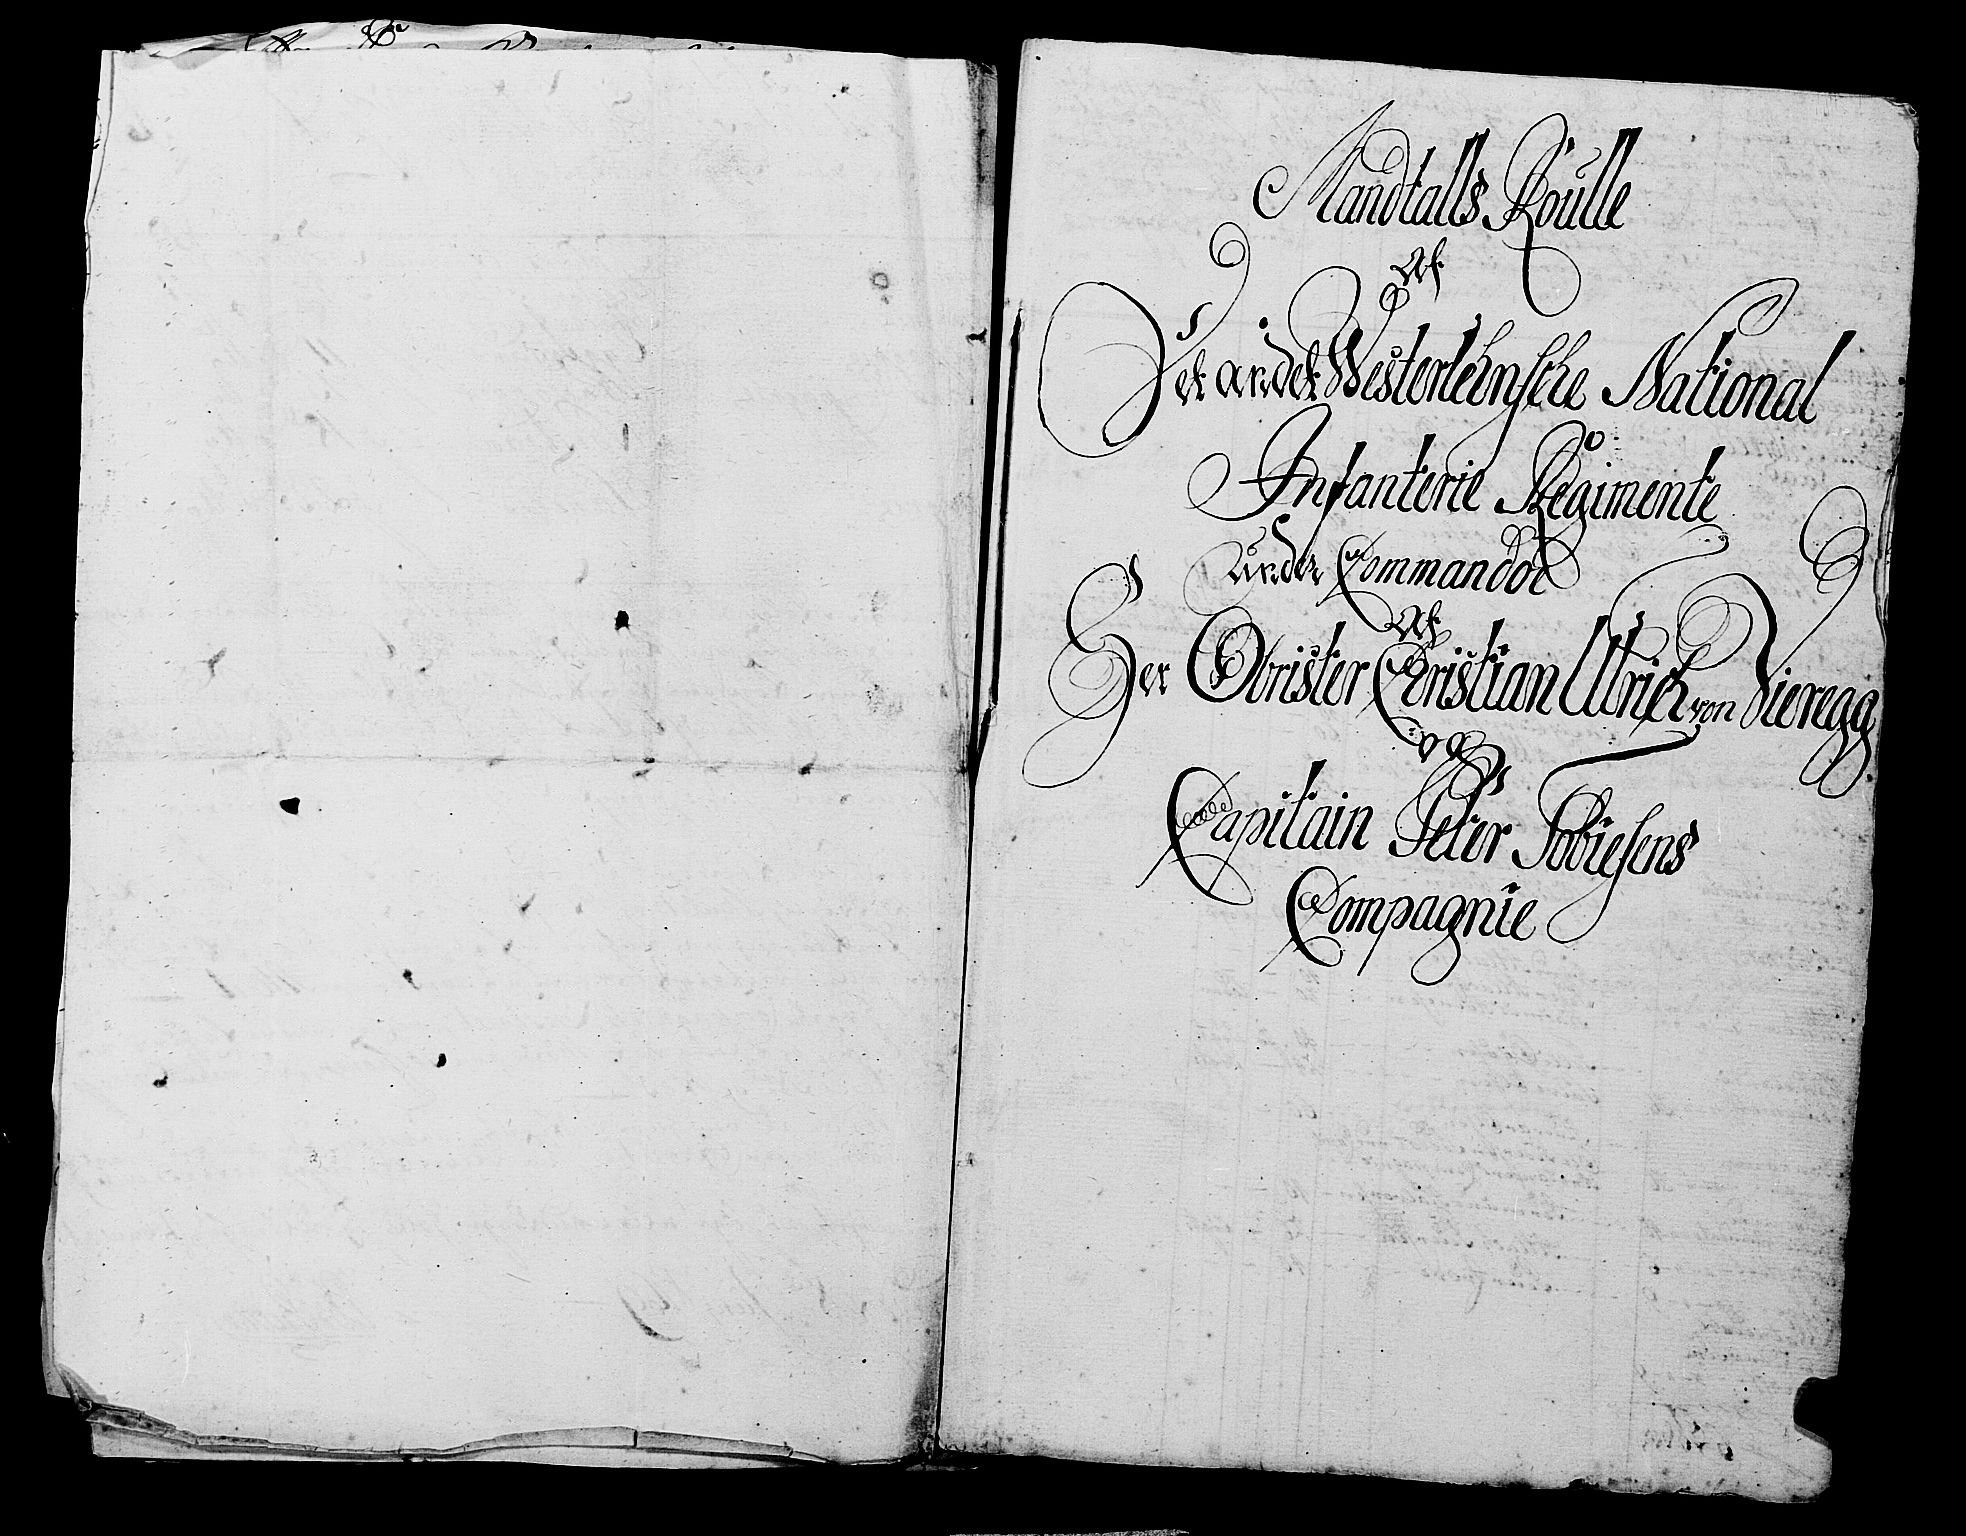 Mandtalls Roulle
Af
Det andet Westerlehnsche National
Infanterie Regimente
under Commando
Af
Her Obrister Christian Ulrich von Vieregg
og
Capitain Peter Tobiesens
Compagnie